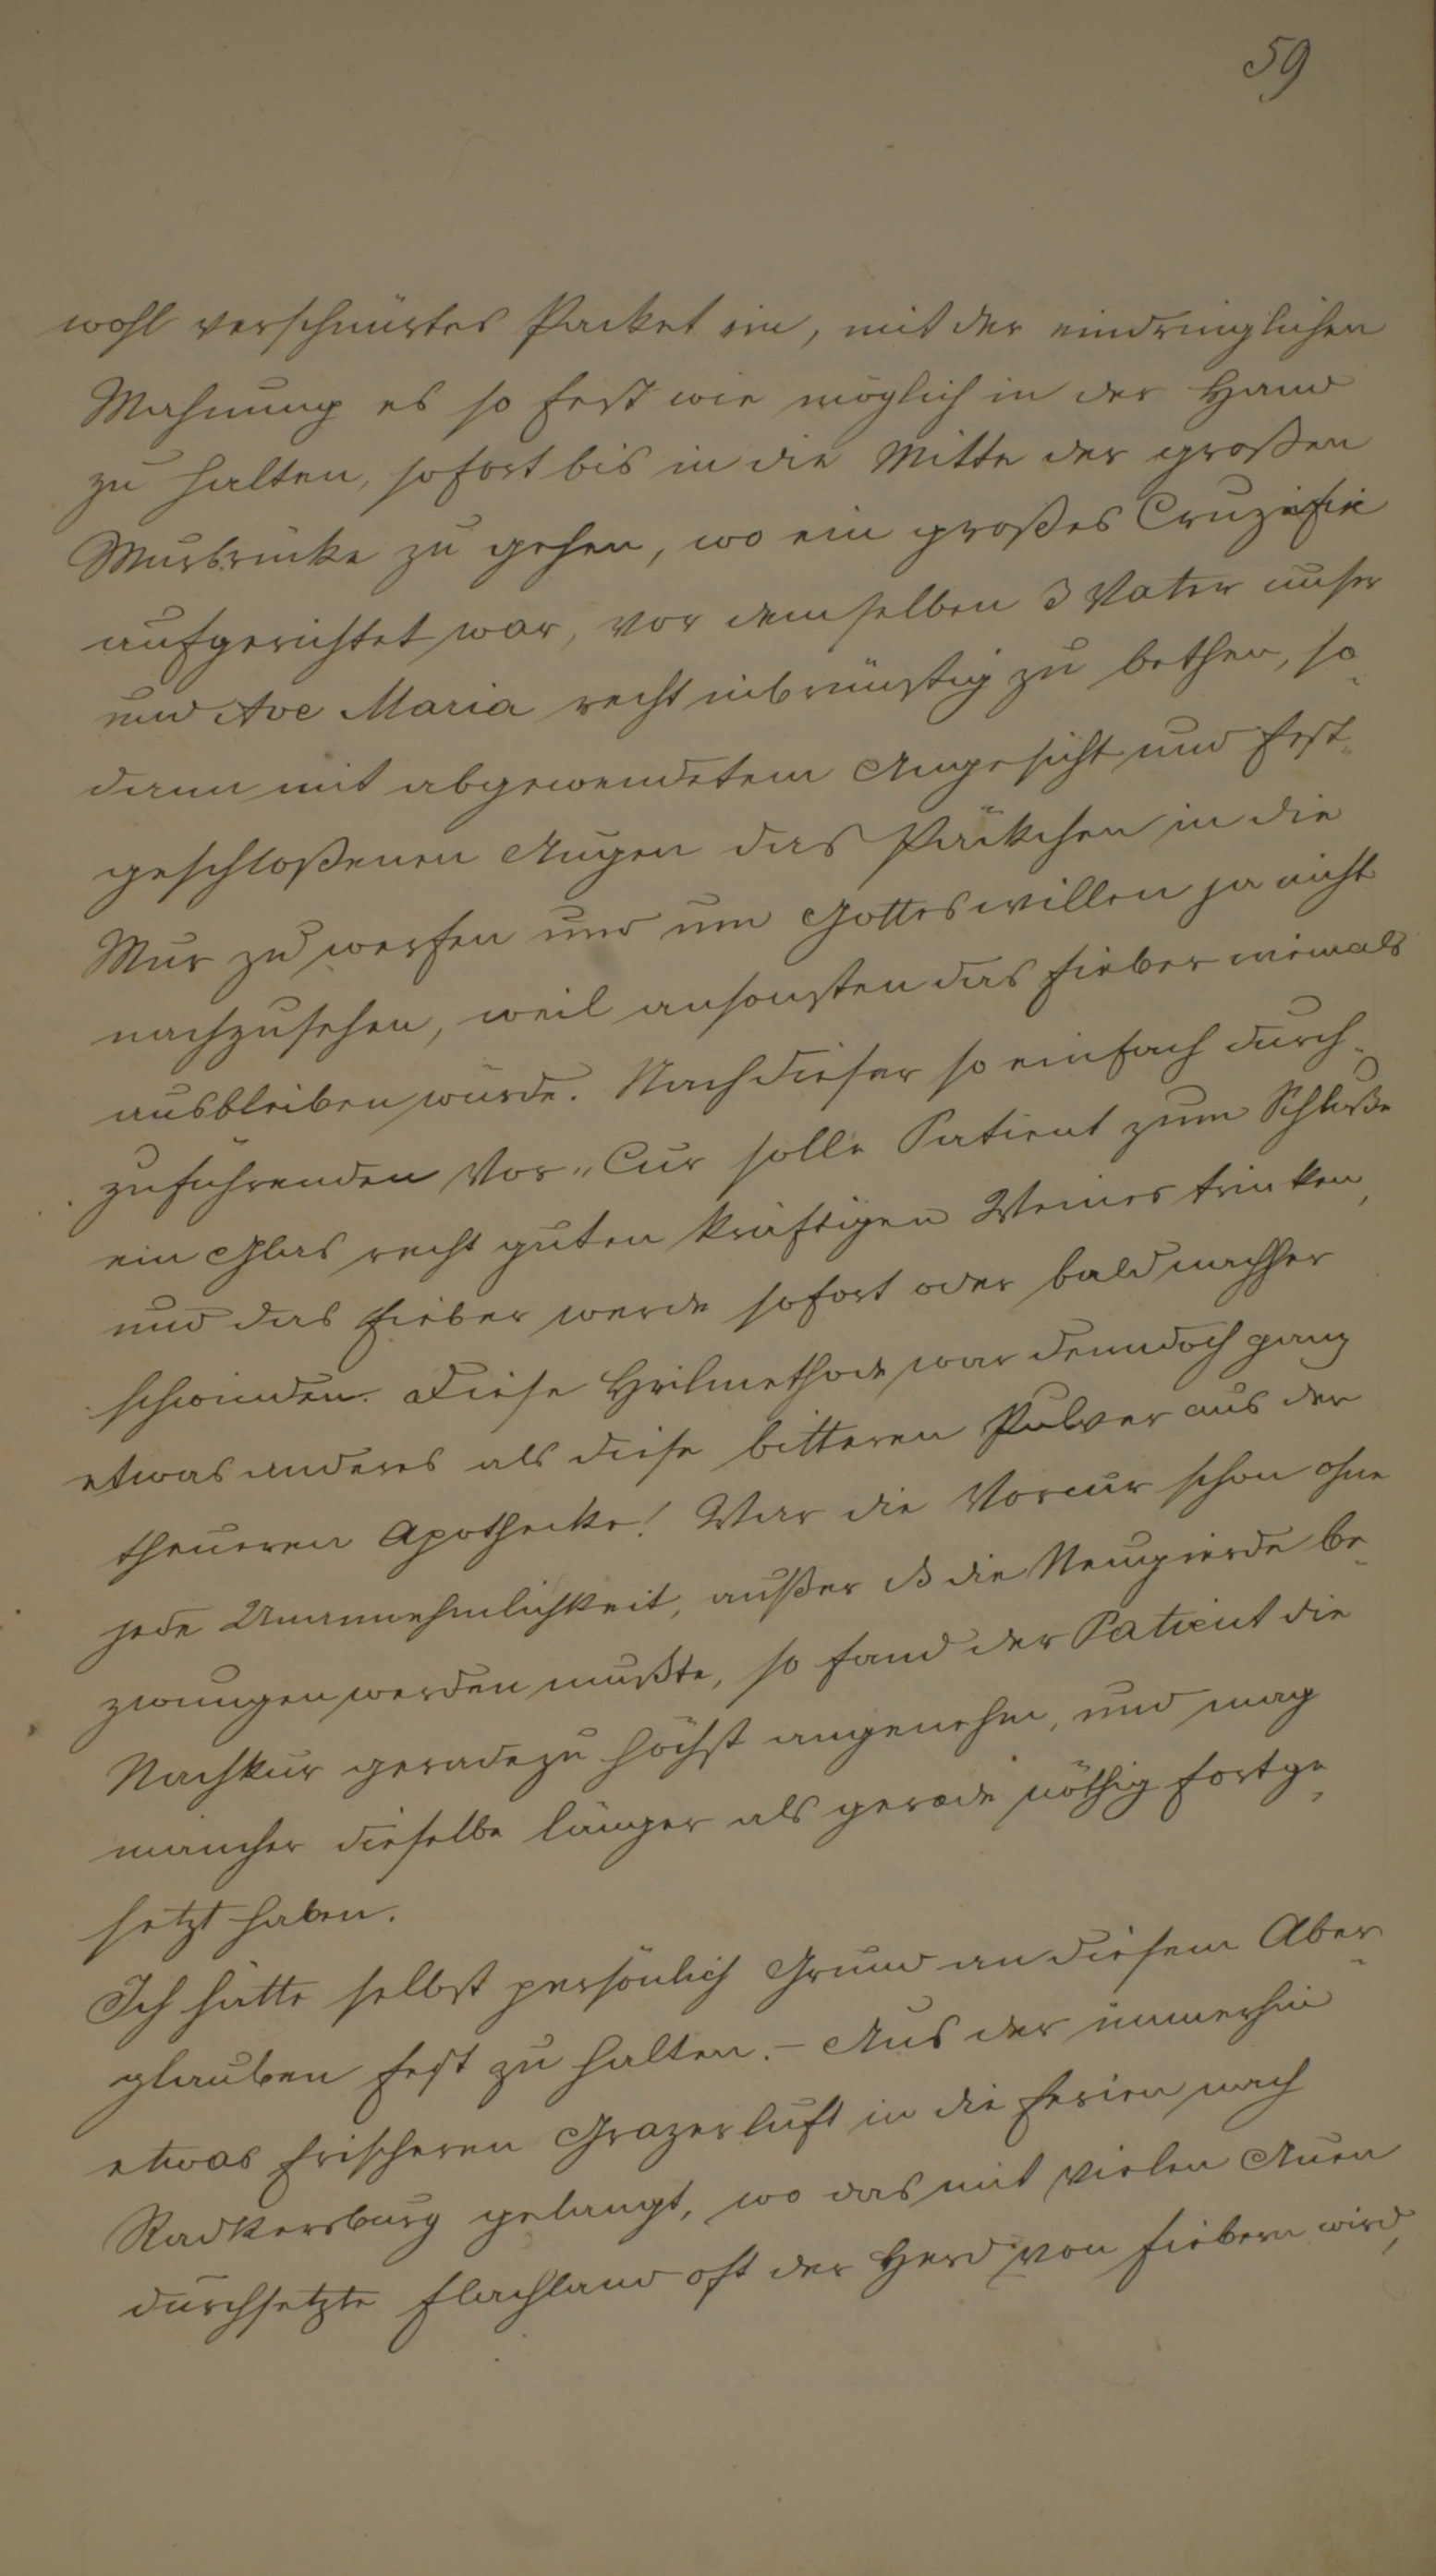 59
wohl verschnürtes Packet ein, mit der eindringlichen
Mahnung es so fest wie möglich in der Hand
zu halten, sofort bis in die Mitte der großen
Murbrücke zu gehen, wo ein großes Cruzifix
aufgerichtet war, vor demselben 3 Vater unser
und Ave Maria recht inbrünstig zu bethen, so-
dann mit abgewendetem Angesicht und fest-
geschloßenen Augen das Päckchen in die
Mur zu werfen und um Gotteswillen ja nicht
nachzusehen, weil ansonsten das Fieber niemals
ausbleiben würde. Nach dieser so einfach durch-
zuführenden Vor-Cur solle Patient zum Schluße
ein Glas recht guten kräftigen Weines trinken,
und das Fieber werde sofort oder bald nachher
schwinden. Diese Heilmethode war denndoch ganz
etwas anderes als diese bitteren Pulver aus der
theueren Apothecke! War die Vorcur schon ohne
jede Unannehmlichkeit, außer die Neugierde be-
zwungen werden mußte, so fand der Patient die
Nachkur geradezu höchst angenehm, und mag
mancher dieselbe länger als gerade nöthig fortge-
setzt haben.
Ich hätte selbst persönlich Grund an diesem Aber-
glauben fest zu halten. – Aus der immerhin
etwas frischeren Grazerluft in die Ferien nach
Radkersburg gelangt, wo das mit vielen Auen
durchsetzte Flachland oft der Herd von Fiebern wird,